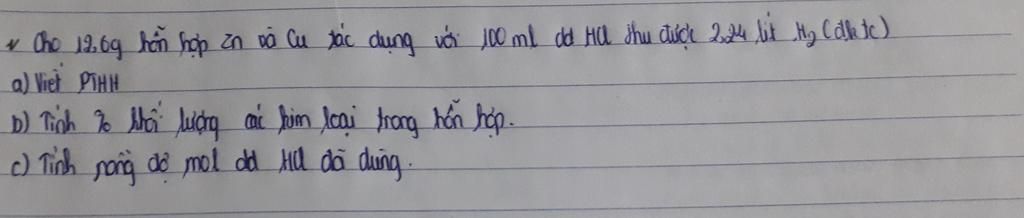 Cho 12,6g hỗn hợp Zn và Cu tác dụng với 100 ml dd HCl thu được 2,24 lít H₂ (đktc)
a) Viết PTHH
b) Tính % khối lượng các kim loại trong hỗn hợp.
c) Tính nồng độ mol dd HCl đã dùng.